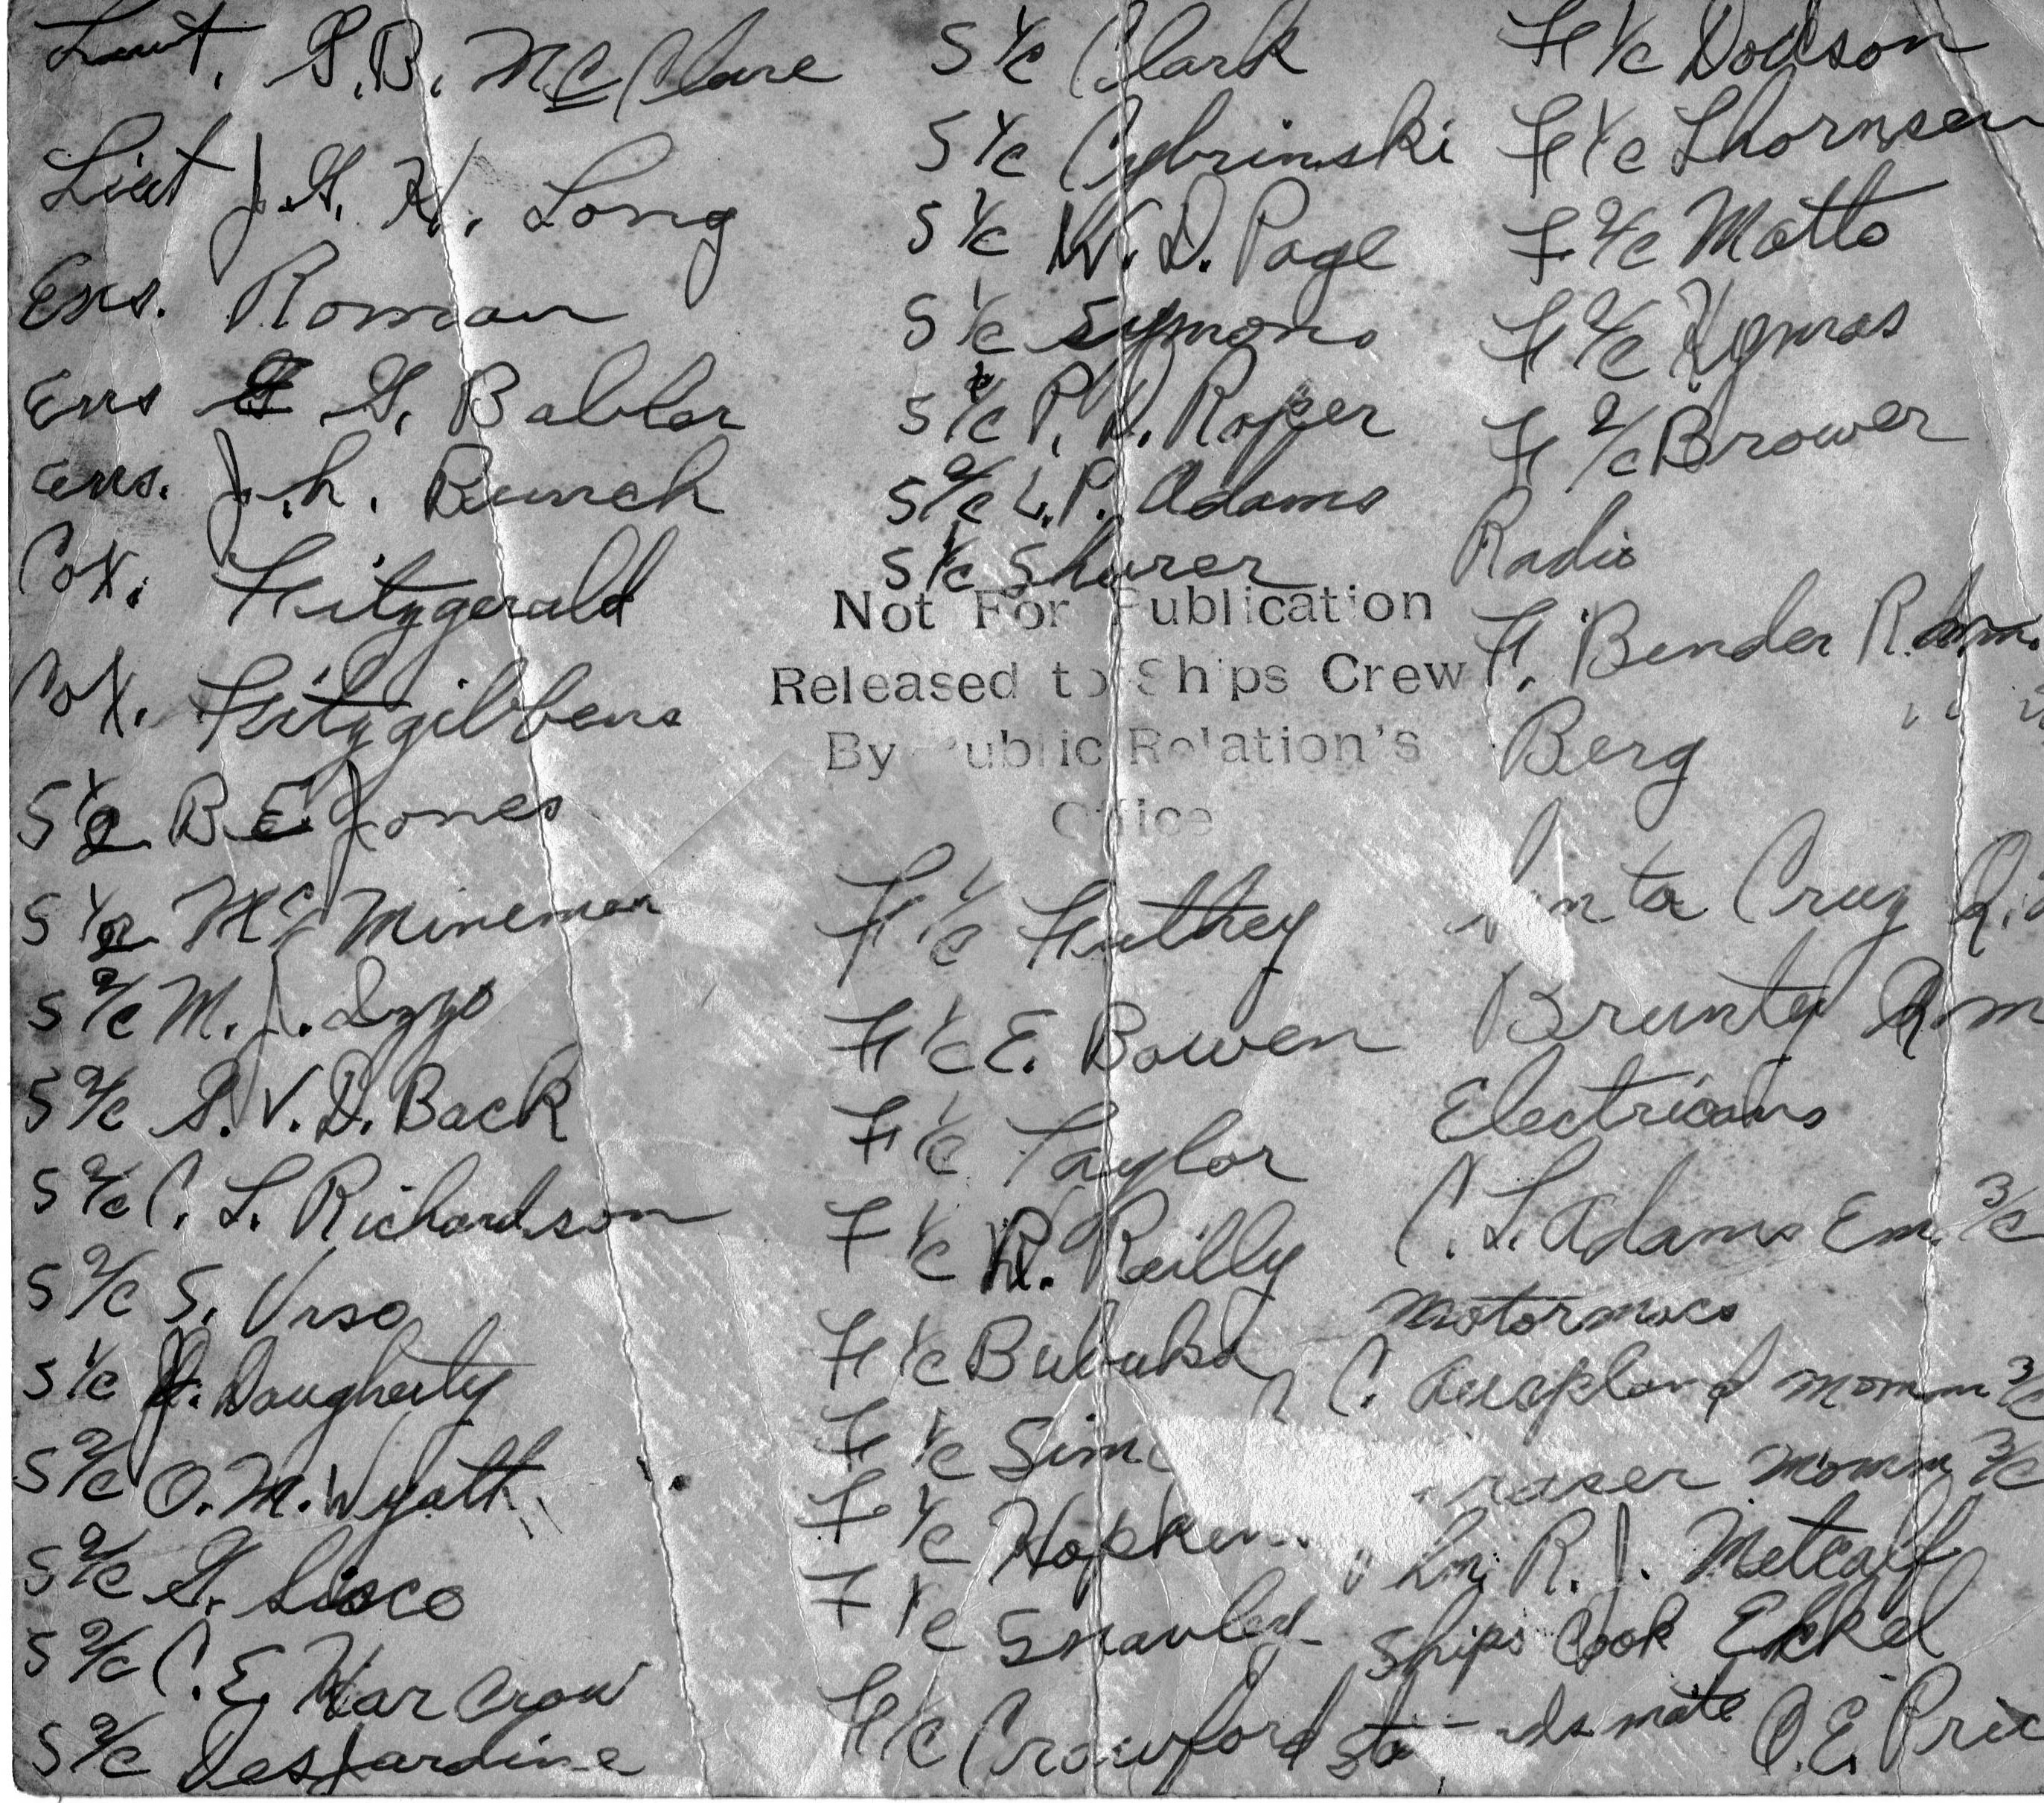 Lieut. G.B. McClure
Lieut J.G. H. Long
Ens. Roman
Ens G. Babler
Ens. J.h. Bunch
Cox. Fitzgerald
Cox. Fitzgibbens
S 1/2 B E Jones
S 1/2 Mc Mineman
S 2/c M. J. Izzo
S 2/c G. V. D. Back
S 2/c C. L. Richardson
S 2/c S. Urso
S 1/c J. Daugherty
S 2/c O. M. Wyatt
S 2/c G. Sisco
S 2/c C. E. Har Crow
S 2/c DesJardine
S 1/c Clark
S 1/c Cybrinski
S 1/c W. D. Page
S 1/c Symons
S 1/c P. D. Roper
S 2/c L. P. Adams
S 1/c Shurer
Not For Publication
Released to Ships Crew
By Public Relation's
Office
F 1/c Huthey
F 1/c E. Bowen
F 1/c Taylor
F 1/c R. Reilly
F 1/c Bubuka
F 1/c Sim
F 1/c Hopkin
F 1/c Snavley
F 1/c Crawford
F 1/c Dodson
F 1/c Thornsen
F 2/c Motto
F 2/c Kymras
F 2/c Brower
Radio
F. Bender R.
Berg " "
ta Cruz R.
Brunty R m
Electricians
C. L. Adams Em. 3/c
Motormacs
C. Aurpland momm 3/c
raser momm 3/c
R. J. Metcalf
Ships Cook Ekkel
St ds mate O.E. Pric